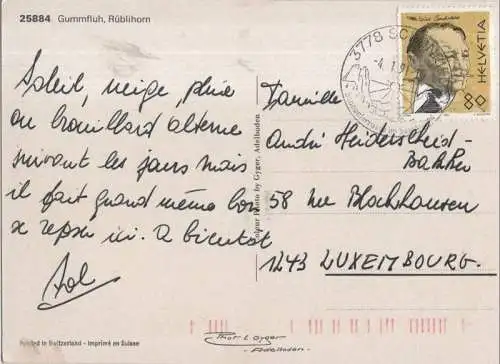 25884 Gummfluh, Rüblihorn
Soleil, neige, pluie
ou brouillard alterne
suivant les jours mais
il fait quand même bon
se reposer ici. A bientôt
Colour Photo by Gyger, Adelboden
Famille
André Heiderscheid-
58 rue Blochhausen
1243 LUXEMBOURG.
3778 SCHÖNRIED
HELVETIA
80
Printed in Switzerland - Imprimé en Suisse
Phot. E. Gyger
- Adelboden -